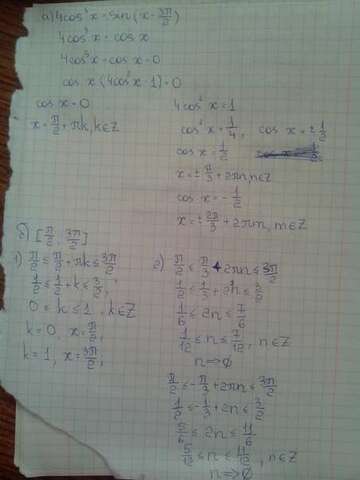 а) 4cos³x = sin(x - 3π/2)
4cos³x = cos x
4cos³x - cos x = 0
cos x (4cos²x - 1) = 0
cos x = 0
x = π/2 + πk, k∈Z
4cos²x = 1
cos²x = 1/4, cos x = ± 1/2
cos x = 1/2
x = ± π/3 + 2πn, n∈Z
cos x = - 1/2
x = ± 2π/3 + 2πm, m∈Z
б) [π/2, 3π/2]
1) π/2 ≤ π/2 + πk ≤ 3π/2
1/2 ≤ 1/2 + k ≤ 3/2,
0 ≤ k ≤ 1, k∈Z
k = 0, x = π/2,
k = 1, x = 3π/2,
2) π/2 ≤ π/3 + 2πn ≤ 3π/2
1/2 ≤ 1/3 + 2n ≤ 3/2
1/6 ≤ 2n ≤ 7/6
1/12 ≤ n ≤ 7/12, n∈Z
n => ∅
π/2 ≤ - π/3 + 2πn ≤ 3π/2
1/2 ≤ - 1/3 + 2n ≤ 3/2
5/6 ≤ 2n ≤ 11/6
5/12 ≤ n ≤ 11/12, n∈Z
n => ∅